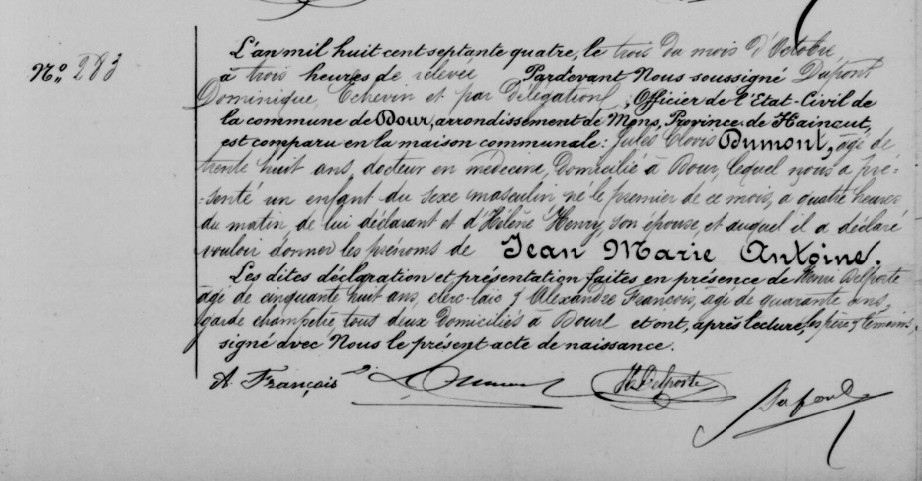 N.º 283
L'an mil huit cent septante quatre, le trois du mois d'Octobre,
à trois heures de relevée Pardevant Nous soussigné Dupont
Dominique, Echevin et par délégation, Officier de l'Etat-Civil de
la commune de Dour, arrondissement de Mons, Province de Hainaut,
est comparu en la maison communale: Jules Clovis Dumont, âgé de
trente huit ans, docteur en médecine, domicilié à Dour, lequel nous a pré-
-senté un enfant du sexe masculin né le premier de ce mois, à quatre heures
du matin, de lui déclarant et d'Hélène Henry, son épouse, et auquel il a déclaré
vouloir donner les prénoms de Jean Marie Antoine.
Les dites déclaration et présentation faites en présence de Henri Delporte
âgé de cinquante huit ans, clerc-laïc & Alexandre François, âgé de quarante ans,
garde champêtre, tous deux domiciliés à Dour et ont, après lecture, les père & témoins,
signé avec Nous le présent acte de naissance.
A. François Dumont Delporte
Dupont